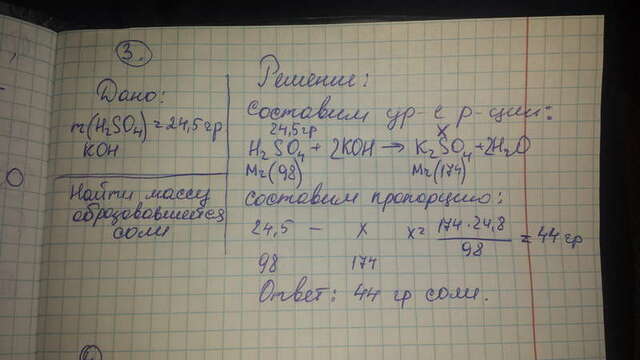 3.
Дано:
m(H₂SO₄)=24,5гр
KOH
Найти массу
образовавшейся
соли
Решение:
Составим ур-е р-ции:
24,5гр x
H₂SO₄+2KOH→K₂SO₄+2H₂O
Mr(98) Mr(174)
Составим пропорцию:
24,5 — x x= 174·24,8 / 98 = 44 гр
98 174
Ответ: 44 гр соли.